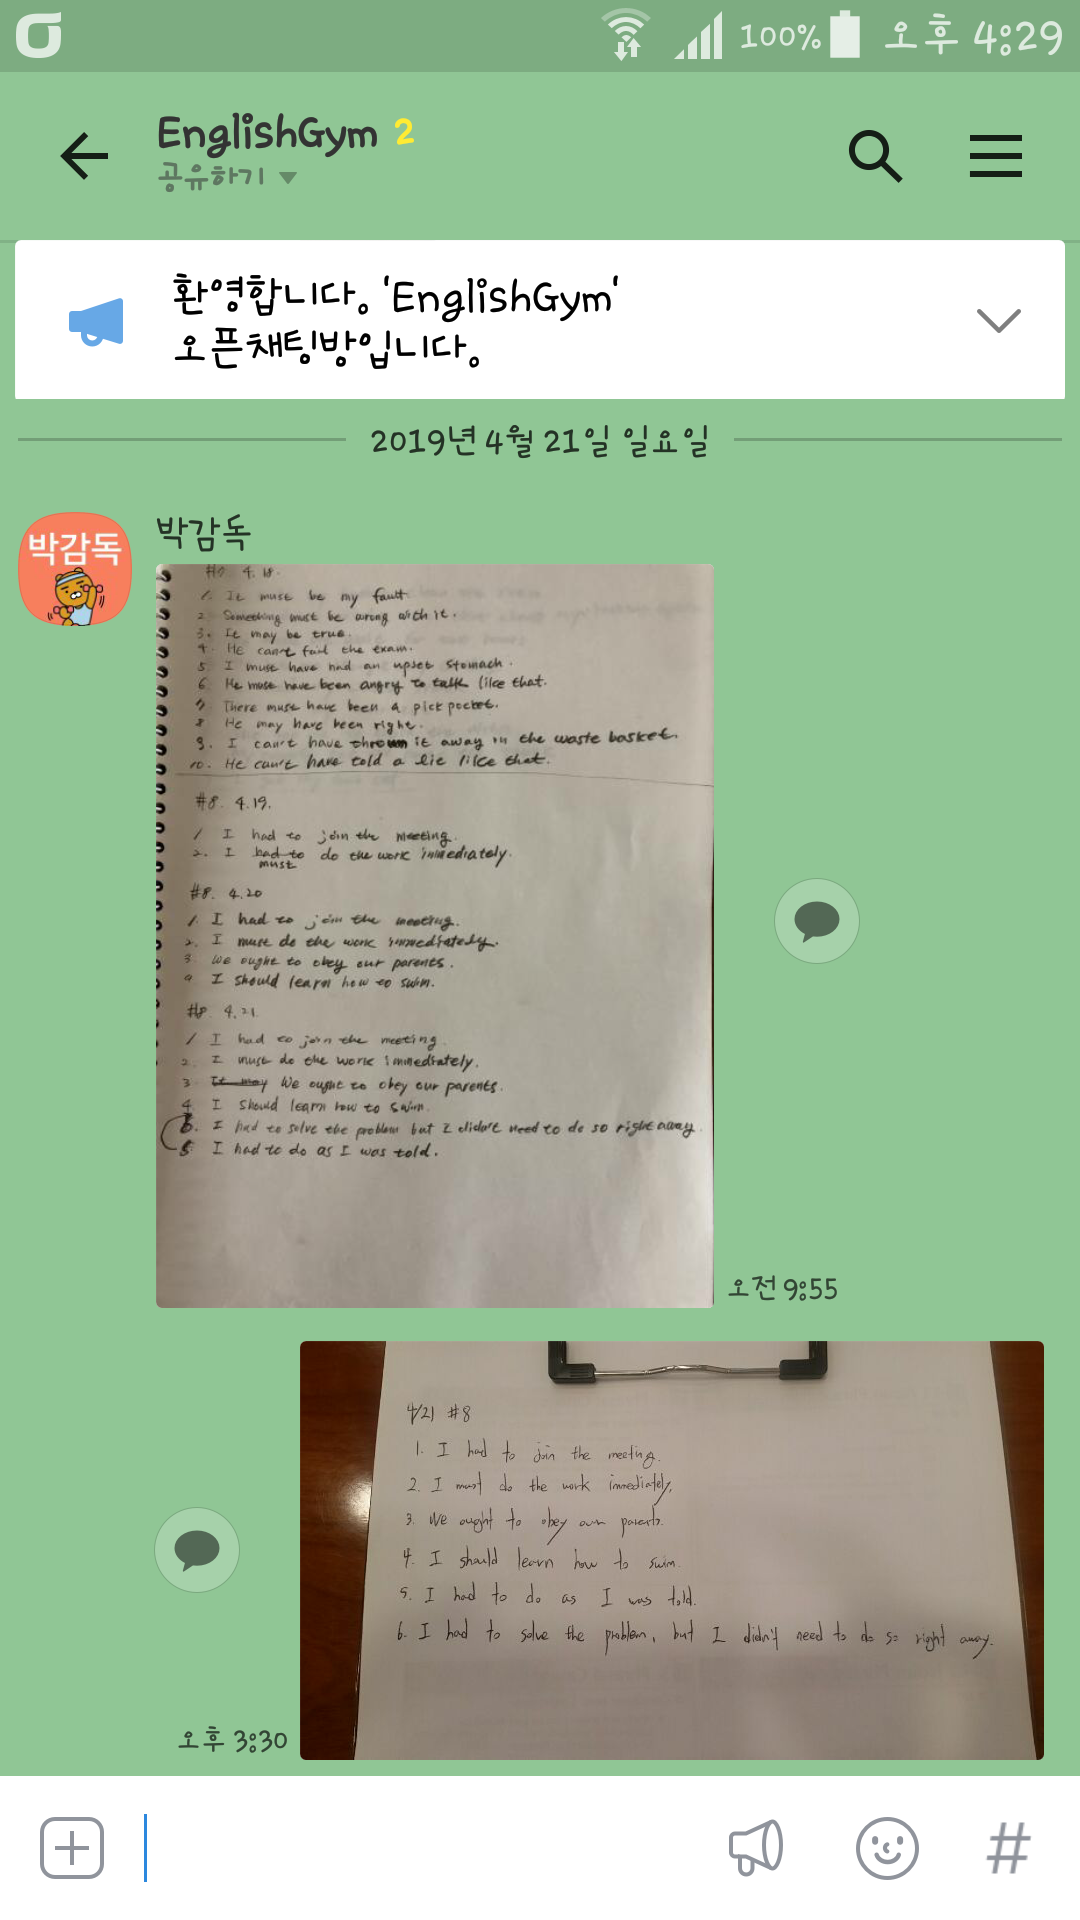 100% 오후 4:29
EnglishGym 2
공유하기
환영합니다. 'EnglishGym'
오픈채팅방입니다.
2019년 4월 21일 일요일
박감독
박감독
#7 4.18.
1. It must be my fault.
2. Something must be wrong with it.
3. It may be true.
4. He can't fail the exam.
5. I must have had an upset stomach.
6. He must have been angry to talk like that.
7. There must have been a pickpocket.
8. He may have been right.
9. I can't have thrown it away in the waste basket.
10. He can't have told a lie like that.
#8. 4.19.
1. I had to join the meeting.
2. I had to do the work immediately.
must
#8. 4.20
1. I had to join the meeting.
2. I must do the work immediately.
3. We ought to obey our parents.
4. I should learn how to swim.
#8. 4.21.
1. I had to join the meeting.
2. I must do the work immediately.
3. It may We ought to obey our parents.
4. I should learn how to swim.
6. I had to solve the problem but I didn't need to do so right away.
5. I had to do as I was told.
오전 9:55
4/21 #8
1. I had to join the meeting.
2. I must do the work immediately.
3. We ought to obey our parents.
4. I should learn how to swim.
5. I had to do as I was told.
6. I had to solve the problem, but I didn't need to do so right away.
오후 3:30
#